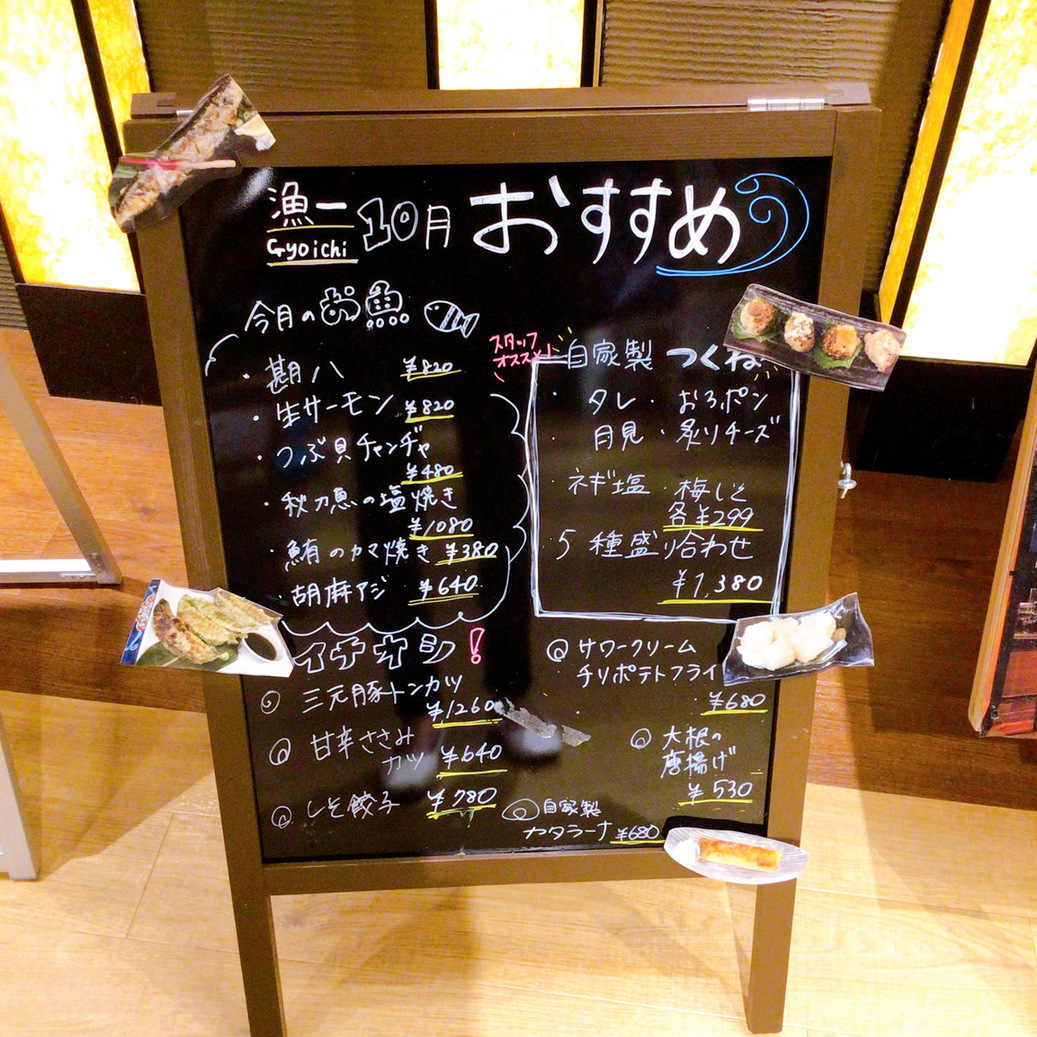 漁一
Gyoichi
10月
おすすめ
今月のお魚
・勘八 ¥820
・生サーモン ¥820
・つぶ貝チャンヂャ
¥480
・秋刀魚の塩焼き
¥1080
・鮪のカマ焼き ¥380
・胡麻アジ ¥640
スタッフ
オススメ!
自家製 つくね
・タレ・おろポン
・月見・炙りチーズ
ネギ塩・梅しそ
各¥299
5種盛り合わせ
¥1,380
イチオシ!
◎三元豚トンカツ
¥1260
◎甘辛ささみ
カツ ¥640
◎しそ餃子 ¥780
◎サワークリーム
チリポテトフライ
¥680
◎大根の
唐揚げ
¥530
◎自家製
カタラーナ ¥680